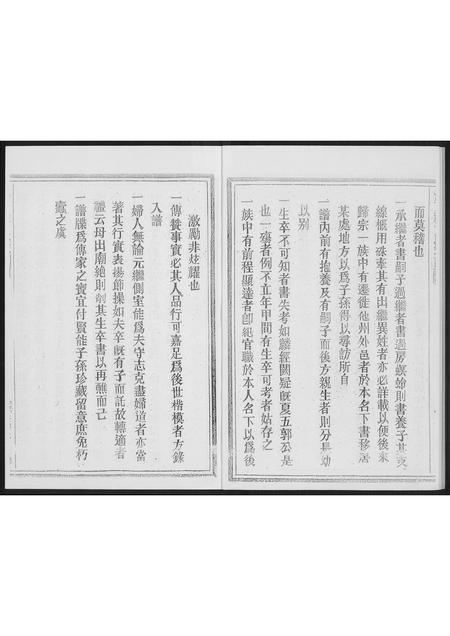 而莫稽也
一承繼者書嗣子過繼者書過房螟蛉則書養子其支
線概用硃牽其有出繼異姓者亦必詳載以便後來
歸宗一族中有遷徙他州外邑者於本名下書移居
某處地方以為子孫得以尋訪所自
一譜內前有抱養及有嗣子而後方親生者則分長幼
以別
一生卒不可知者書失考如麟經闕疑既夏五郭公是
也一殤者例不立年甲間有生卒可考者姑存之
一族中有前程顯達者卽紀官職於本人名下以為後
激勵非炫謹也
一傳贊事實必其人品行可嘉足為後世楷模者方錄
入譜
一婦人無論元繼側室能為夫守志克盡婦道者亦當
著其行實表揚節操如夫卒既有子而託故轉適者
禮云母出廟絶則削其生卒書以再醮而已
一譜牒為傳家之寶宜付賢能子孫珍藏留意庶免朽
蠹之虞